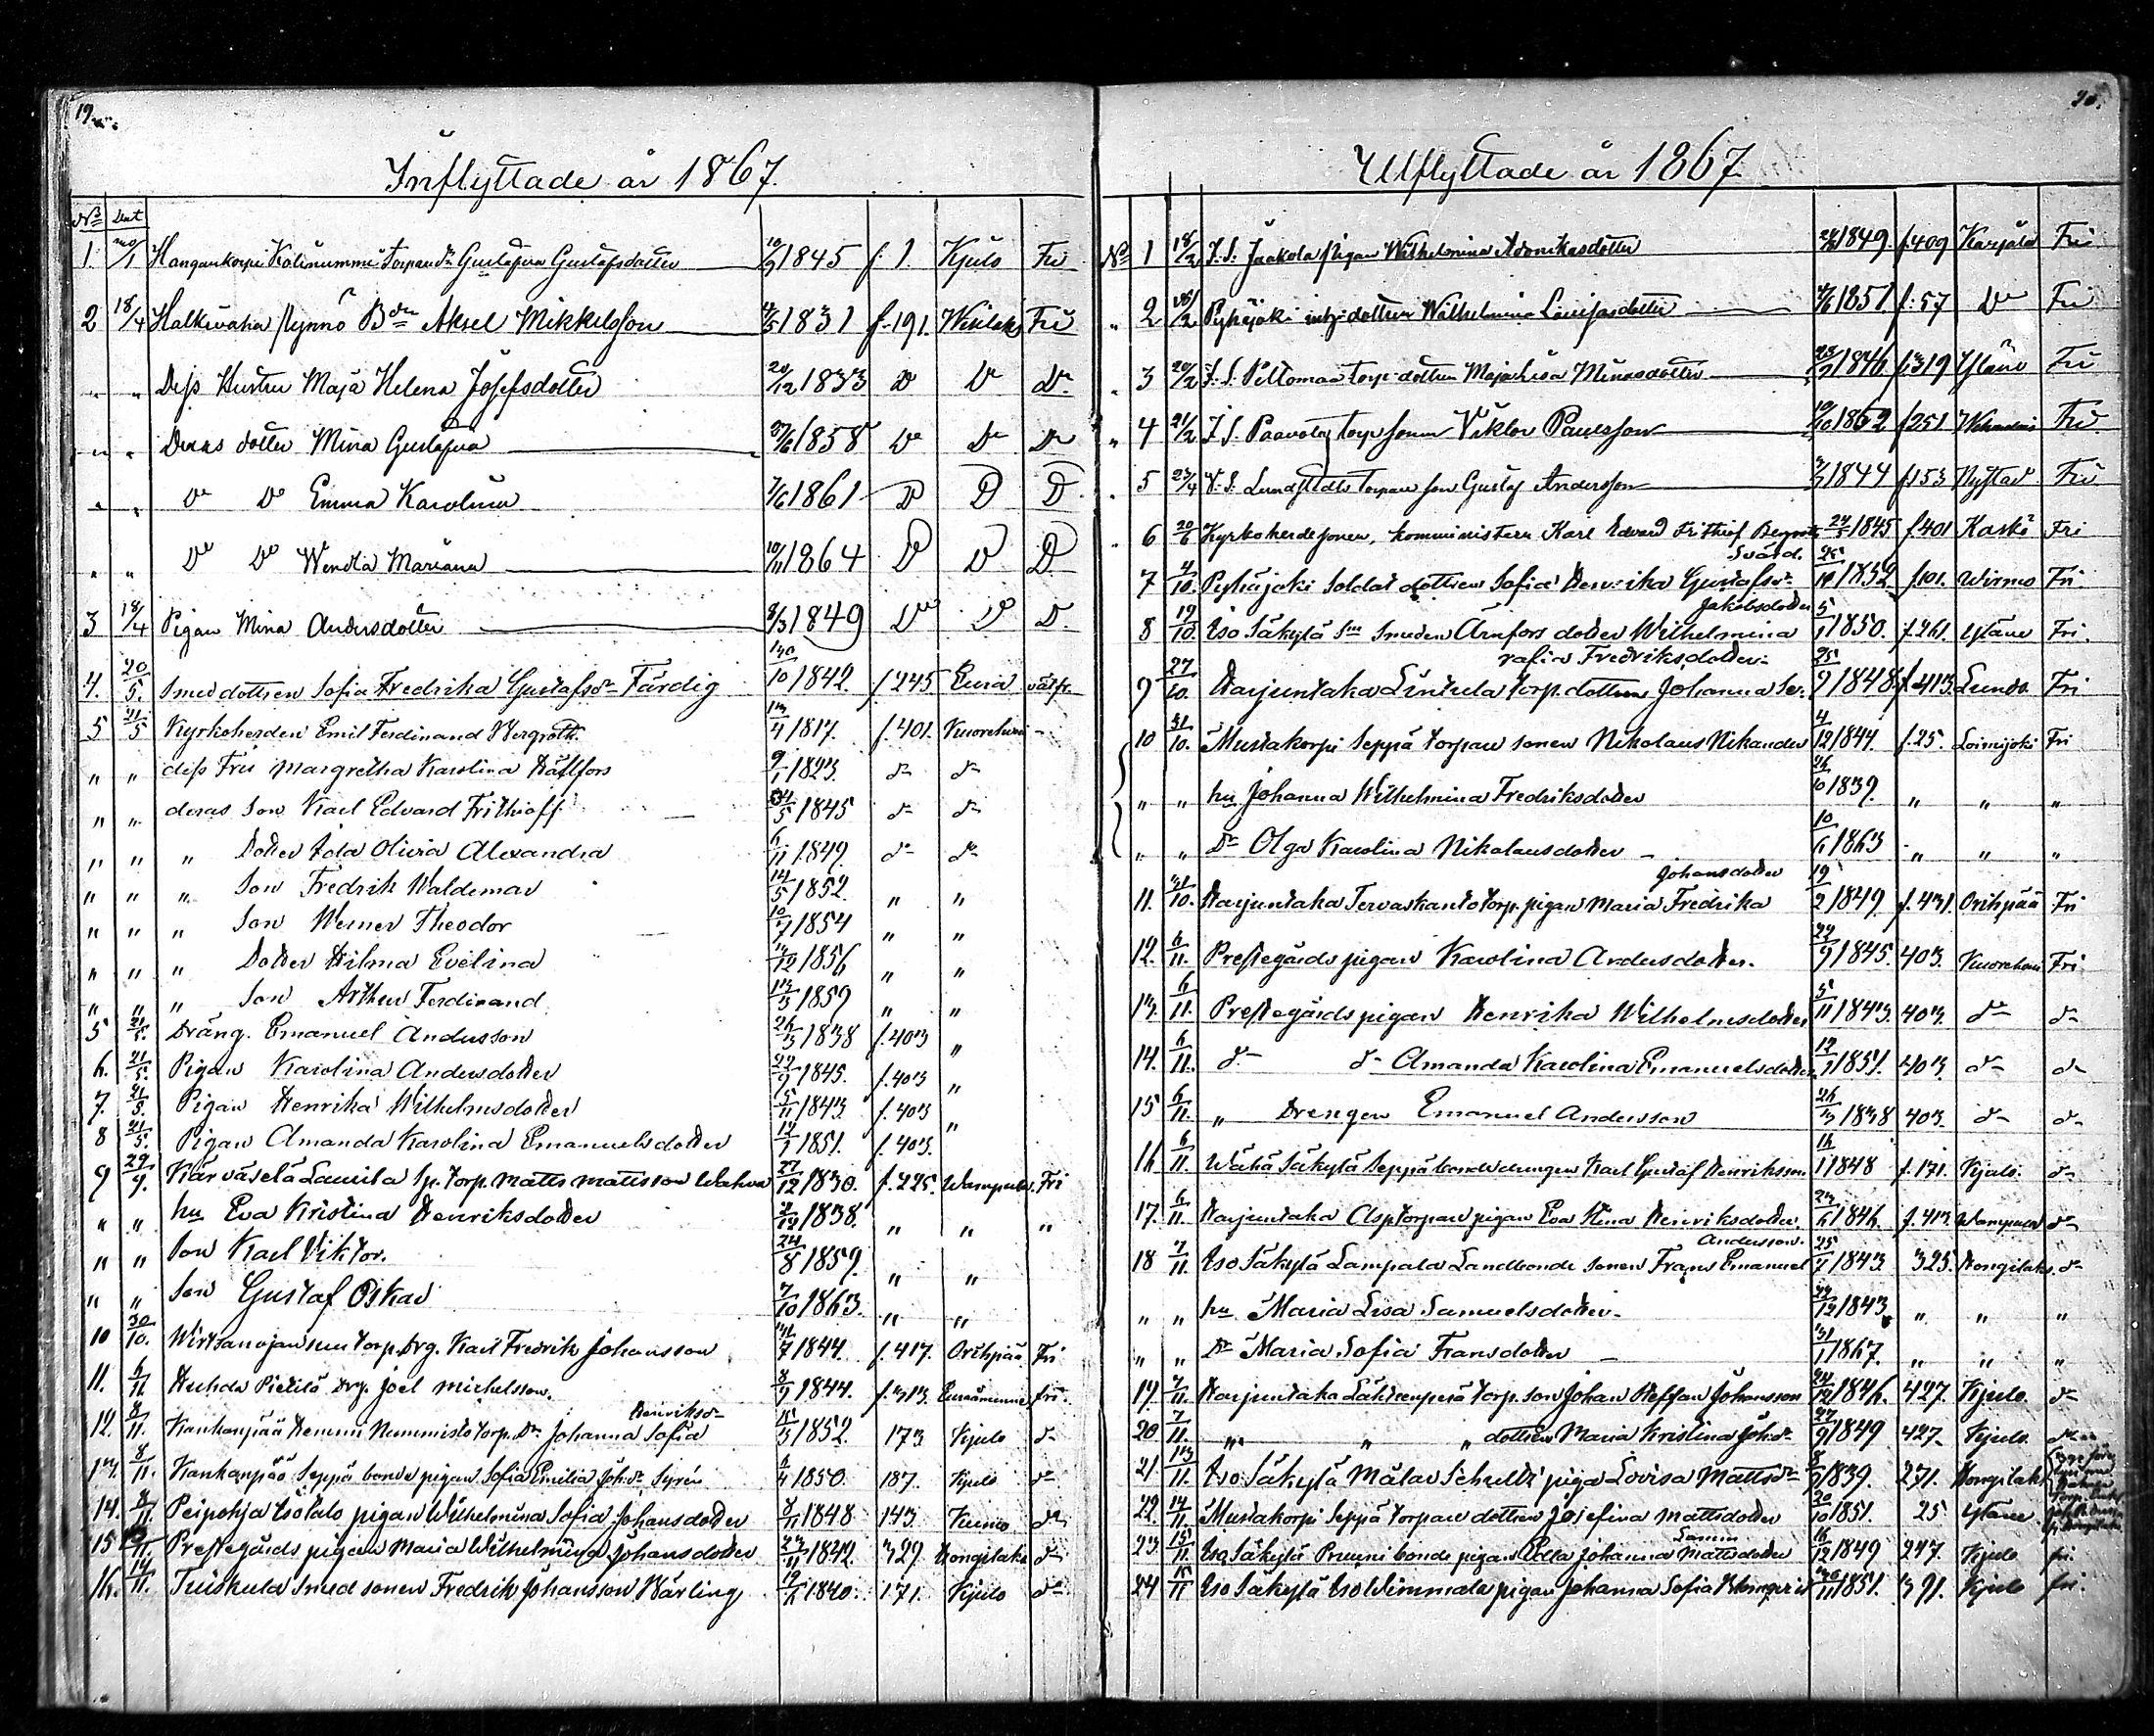 19
Inflyttade år 1867.
No Dat
1. Hangankorpi torpardr Gustafva Gustafsdotter 1845 f. 1. Kjulo Fri
2 18/4 Halkivaha Bdn Aksel Mikkelsson 1831 f. 191. Fri
" " Dess Hustru Maja Helena Josefsdotter 20/12 1833 Do Do Do
" " Deras dotter Mina Gustafva 1858 Do Do Do
" " Do Do Emma Karolina 7/6 1861 D D D
" " Do Do Wendla Mariana 10/11 1864 D D D
3 18/4 Pigan Mina Andersdotter 8/3 1849 Do Do D.
4. 20/5. Smeddottren Sofia Fredrika Gustafsdr Färdig 1842. f 245 Eura välfr.
5 21/5 Kyrkoherden Emil Ferdinand Bergroth. 13/4 1817. f. 401. Kuorehvesi -
" " dess Fru Margretha Karolina Hällfors 9/1 1823. d- d-
" " deras Son Karl Edvard Frithioff 24/5 1845 d- d-
" " " Dotter Ida Olivia Alexandra 6/11 1849. d- d-
" " " Son Fredrik Waldemar 14/5 1852. " "
" " " Son Werner Theodor 10/7 1854 " "
" " " Dotter Hilma Evelina 1856 " "
" " " Son Arthur Ferdinand 13/3 1859 " "
5 21/5. Dräng. Emanuel Andersson 26/3 1838 f. 403 "
6. 21/5. Pigan Karolina Andersdotter 22/9 1845. f. 403 "
7. 21/5. Pigan Henrika Wilhelmsdotter 5/11 1843 f. 403 "
8 21/5. Pigan Amanda Karolina Emanuelsdotter 1851. f. 403.
9 29/9. Kärväselä Laurila Sp. torp. Matts Mattsson Wahva 27/12 1830. f. 225. Wampula. Fri
" " hu Eva Kristina Henriksdotter 1838. " " "
" " Son Karl Viktor. 24/8 1859. " "
" " Son Gustaf Oskar 7/10 1863. " "
10 30/10. torp. drg. Karl Fredrik Johansson 1844. f. 417. Oripää Fri
11. 6/11. Huhda Pietilä drg. Joel Michelsson. 8/9 1844. f. 313. Euraåminne fri.
Henriksdr
12. 8/11. Kankanpää Hemmi Nummisto torp. Dr Johanna Sofia 1852. 173 Kjulo d-
13. 8/11. Kankanpää Seppä bonde pigan Sofia Emilia Joh.dr Syrén 1850. 187. Kjulo d-
14. 8/11. Peipohja Isotalo pigan Wilhelmina Sofia Johansdotter 1848 143 Kumo d-
15 Prestegårds pigan Maria Wilhelmina Johansdotter 1842 329 Hongilaks d-
16. 14/11. Tuiskula Smed sonen Fredrik Johansson Wärling 1840. 171. Kjulo d-
20.
Utflyttade år 1867
No 1 18/2 I. S. Jaakola pigan Wilhelmina 1849. f. 409 Karjala Fri
" 2 Pyhäjoki inh. dottren Wilhelmina Lovisasdotter 1851. f. 57 Do Fri
" 3 20/2 I. S. Piltomaa torp. dottren Maja Lisa 1846 f. 319 Yläne Fri
" 4 21/2 I. S. Paavola torp Sonen Viktor Paulsson 1862 f 251 Fri
" 5 I. S. Lundstedts torpare son Gustaf Andersson 1844 f 153 Nystad Fri
" 6 20/6 Kyrkoherdesonen, kommministern Karl Edvard Frithiof Bergroth 24/5 1845 f. 401 Kaskö Fri
Svärd.
7 4/10. Pyhäjoki Soldat dottren Sofia Henrika Gustafsdr 1832 f. 101. Wirmo Fri
Jakobsdotter
8 19/10. Iso Säkylä Smeden Arnfors dotter Wilhelmina 5/1 1850. f. 261. Yläne Fri.
rafia Fredriksdotter
9 27/10. Harjuntaka Lintula torp. dottren Johanna Se- 25/9 1848. f. 413. Lundo Fri
10 31/10. Mustakorpi Seppä torpare sonen Nikolaus Nikander 4/12 1844. f. 25. Loimijoki Fri
" " hu Johanna Wilhelmina Fredriksdotter 1839. " " "
" " Dr Olga Karolina Nikolausdotter 1863 " " "
Johansdotter
11. 31/10. Harjuntaka Tervaskanto torp. pigan Maria Fredrika 19/2 1849. f. 431. Oripää Fri
12. 6/11. Prestegårds pigan Karolina Andersdotter. 22/9 1845. 403. Fri
13. 6/11. Prestegårds pigan Henrika Wilhelmsdotter 5/11 1843. 403. d- d-
14. 6/11. d- d- Amanda Karolina Emanuelsdotter 1851. 403. d- d-
15 6/11. " Drengen Emanuel Andersson 26/3 1838 403. d- d-
16 6/11. Wähä Säkylä Seppä bonde drengen Karl Gustaf Henriksson 16/1 1848 f. 171. Kjulo. d-
17. 6/11. Harjuntaka Asp torpare pigan Eva Stina Henriksdotter. 1846. f. 413. Wampula d-
Andersson.
18 7/11. Iso Säkylä Lampala Landbonde sonen Frans Emanuel 25/7 1843 325. Hongilaks. d-
" " hu Maria Lisa Samuelsdotter. 1843 " " "
" " Dr Maria Sofia Fransdotter 31/1 1867. " " "
19 7/11. Harjuntaka Lähteenperä torp. son Johan Steffan Johansson 24/12 1846. 427. Kjulo. d-
20 7/11. " " " dottren Maria Kristina Joh.dr 27/9 1849 427. Kjulo d-
21 13/11. Iso Säkylä Mälar Schultz piga Lovisa Mattsdr 1839. 271. Hongilaks
22. 14/11. Mustakorpi Seppä torpare dottren Josefina Mattsdotter 30/10 1851. 25 Yläne
23 15/11. Iso Säkylä Pruuni bonde pigan Edla Johanna Mattsdotter 16/12 1849 247. Kjulo fri.
24 15/11 Iso Säkylä Iso Wimmala pigan Johanna Sofia 1851. 391. Kjulo fri.